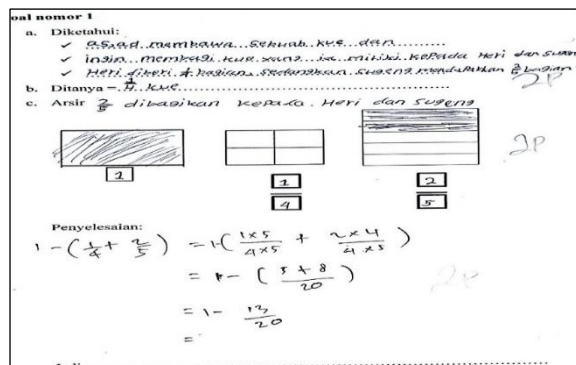 oal nomor 1
a. Diketahui:
✓ asad membawa sebuah kue dan
✓ ingin membagi kue yang ia miliki kepada Heri dan Sugeng
✓ Heri diberi 1/4 bagian, sedangkan sugeng mendapatkan 2/5 bagian
2P
b. Ditanya - kue
c. Arsir 2/5 dibagikan kepada Heri dan Sugeng
2P
1
1/4
2/5
Penyelesaian:
1 - (1/4 + 2/5) = 1-(1×5/4×5 + 2×4/4×5)
= 1 - (5+8/20)
2P
= 1 - 13/20
=